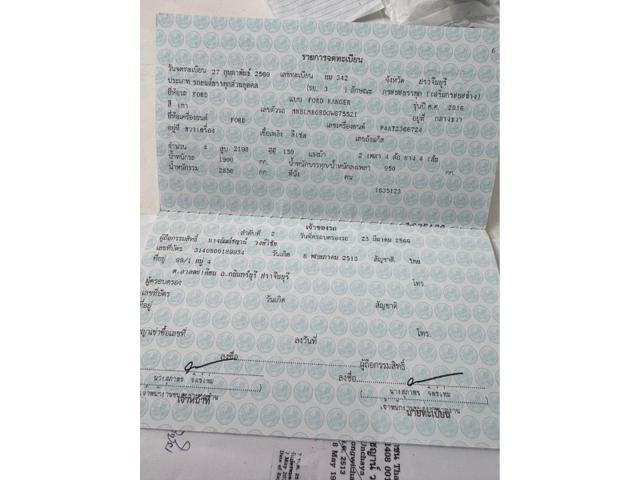 6
รายการจดทะเบียน
วันจดทะเบียน 27 กุมภาพันธ์ 2569 เลขทะเบียน ยม 342 จังหวัด ปราจีนบุรี
ประเภท รถยนต์บรรทุกส่วนบุคคล (รย. 3 ) ลักษณะ กระบะบรรทุก (เสริมกระบะข้าง)
ยี่ห้อรถ FORD แบบ FORD RANGER รุ่นปี ค.ศ. 2016
สี เทา เลขตัวรถ อยู่ที่ กลางขวา
ยี่ห้อเครื่องยนต์ FORD เลขเครื่องยนต์ P4AT2366724
อยู่ที่ ขวาเครื่อง เชื้อเพลิง ดีเซล เลขถังแก๊ส
จำนวน 4 สูบ 2198 ซีซี 150 แรงม้า 2 เพลา 4 ล้อ ยาง 4 เส้น
น้ำหนักรถ 1900 กก. น้ำหนักบรรทุก/น้ำหนักลงเพลา 950 กก.
น้ำหนักรวม 2850 กก. ที่นั่ง คน
1635123
เจ้าของรถ
ลำดับที่ 2 วันที่ครอบครองรถ 23 มีนาคม 2569
ผู้ถือกรรมสิทธิ์
เลขที่บัตร 3140800189934 วันเกิด 8 พฤษภาคม 2513 สัญชาติ ไทย
ที่อยู่ 99/1 หมู่ 4 โทร
ต.ลาดตะเคียน อ.กบินทร์บุรี ปราจีนบุรี
ผู้ครอบครอง
เลขที่บัตร วันเกิด สัญชาติ
ที่อยู่ โทร.
ลงวันที่
ลงชื่อ ผู้ถือกรรมสิทธิ์
ลงชื่อ
เจ้าหน้าที่ นายทะเบียน
2513
8 May 19